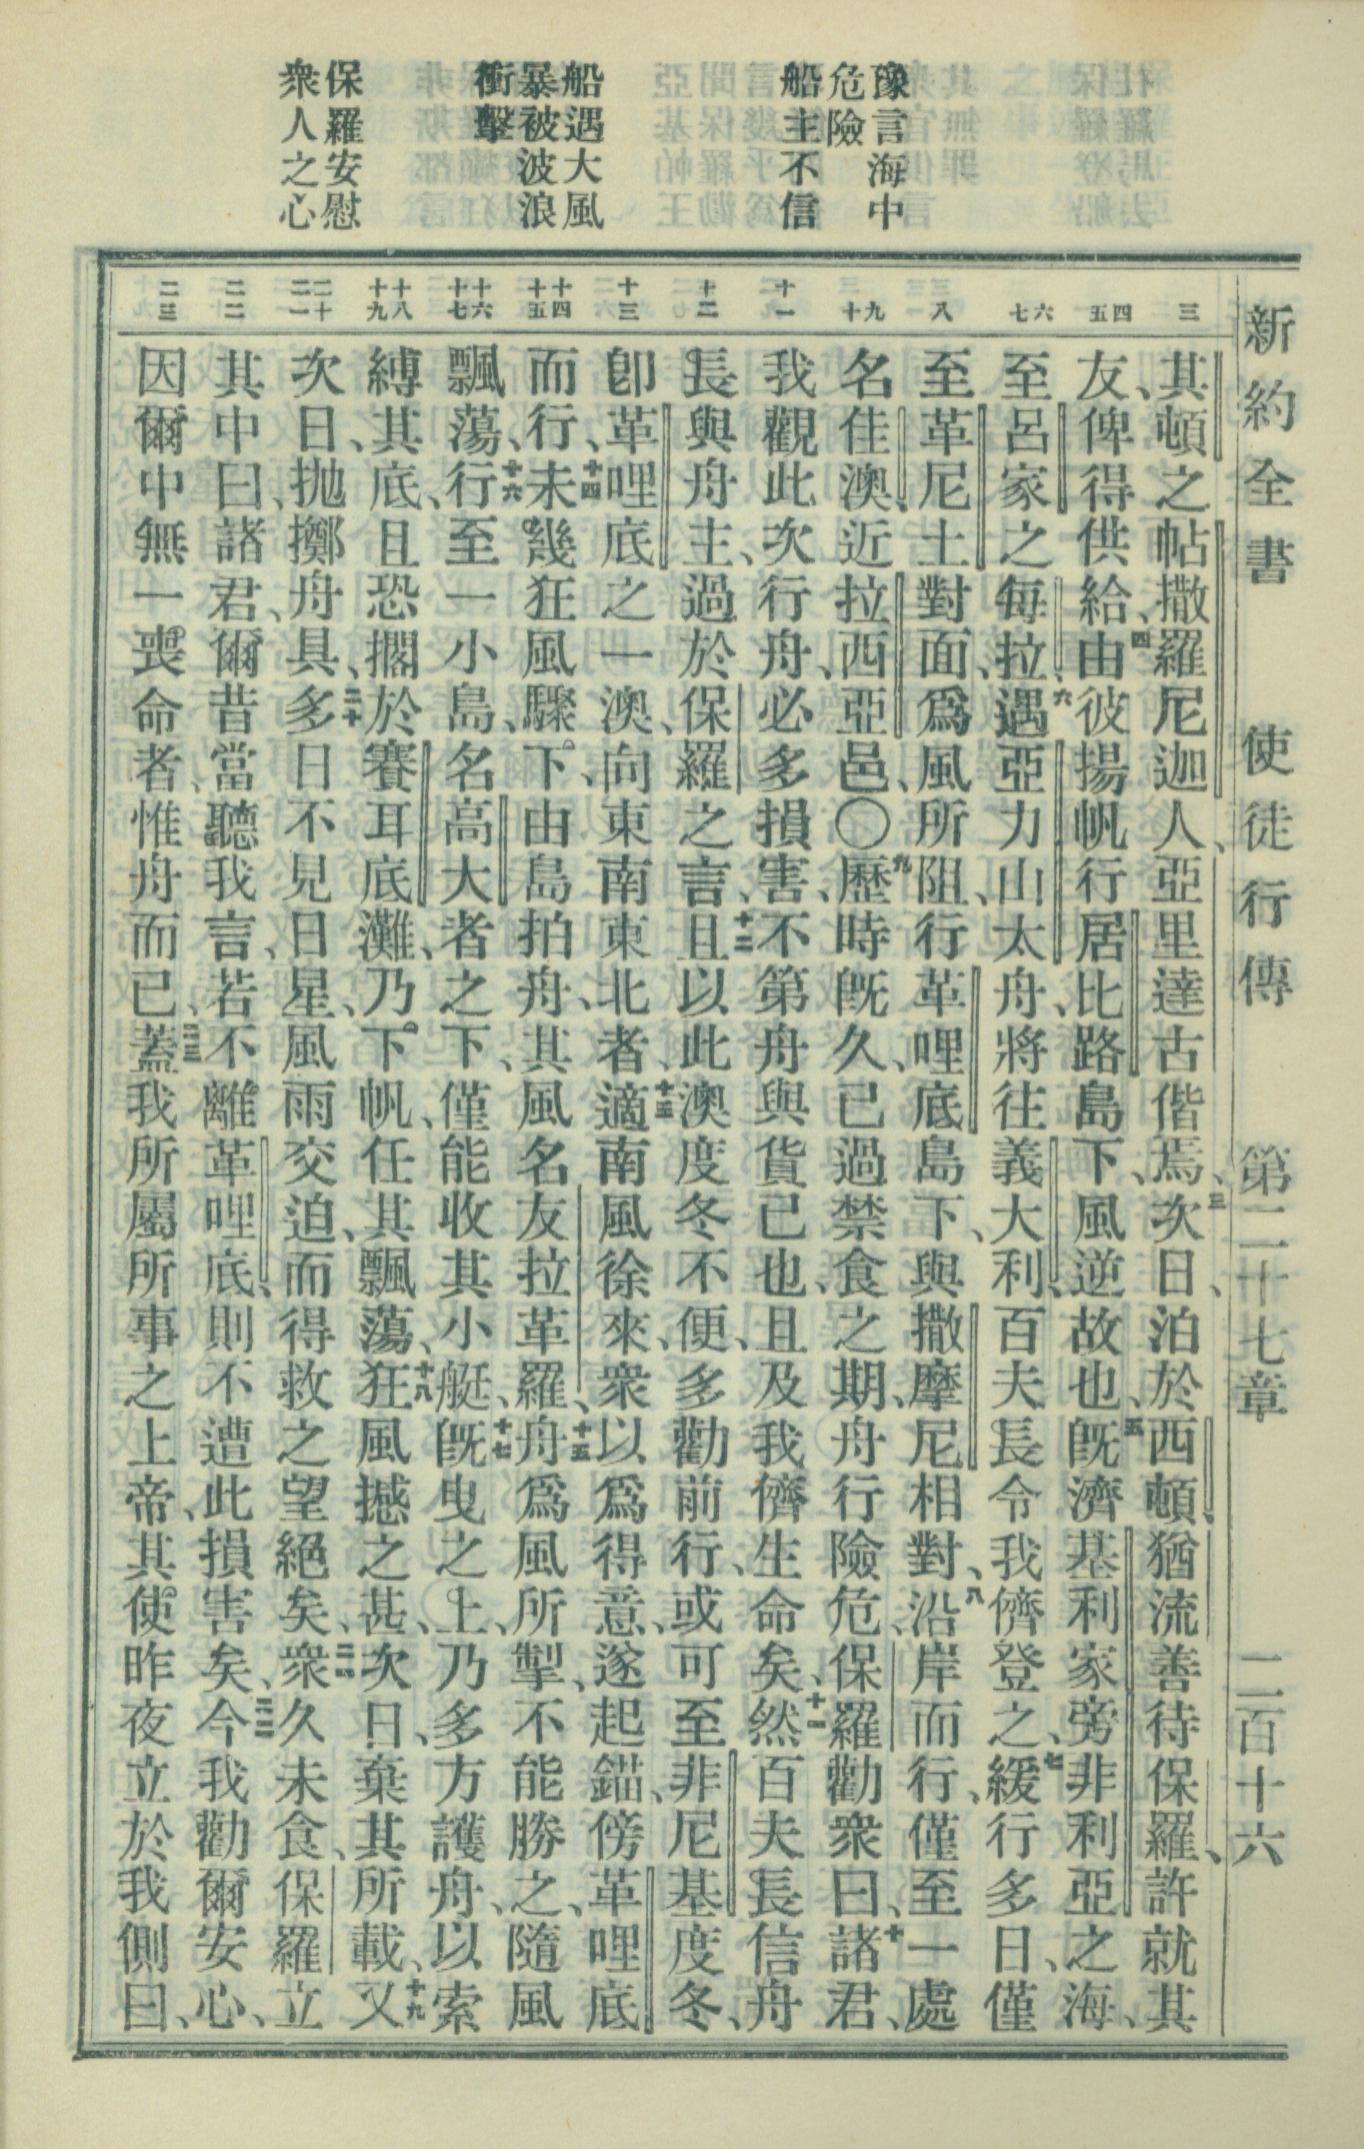 新約全書 使徒行傳 第二十七章 二百十六
豫言海中
危險
船主不信
船遇大風
暴被波浪
衝擊
保羅安慰
衆人之心
三
四 五
六 七
八
九 十
十一
十二
十三
十四 十五
十六 十七
十八 十九
二十 二一
二二
二三
其頓之帖撒羅尼迦人、亞里達古偕焉、三次日、泊於西頓、猶流善待保羅、許就其
友、俾得供給、四由彼揚帆行居比路島下、風逆故也、五旣濟基利家旁非利亞之海、
至呂家之每拉、六遇亞力山太舟、將往義大利、百夫長令我儕登之、七緩行多日、僅
至革尼土對面、爲風所阻、行革哩底島下、與撒摩尼相對、八沿岸而行、僅至一處
名佳澳、近拉西亞邑、〇九歷時旣久、已過禁食之期、舟行險危、保羅勸衆曰、十諸君、
我觀此次行舟、必多損害、不第舟與貨已也、且及我儕生命矣、十一然百夫長信舟
長與舟主、過於保羅之言、十二且以此澳度冬不便、多勸前行、或可至非尼基度冬、
卽革哩底之一澳、向東南東北者、十三適南風徐來、衆以爲得意、遂起錨、傍革哩底
而行、十四未幾狂風驟下、由島拍舟、其風名友拉革羅、十五舟爲風所掣、不能勝之、隨風
飄蕩、十六行至一小島、名高大者之下、僅能收其小艇、十七旣曳之上、乃多方護舟、以索
縛其底、且恐擱於賽耳底灘、乃下帆、任其飄蕩、十八狂風撼之甚、次日、棄其所載、十九又
次日、拋擲舟具、二十多日不見日星、風雨交迫、而得救之望絕矣、二一衆久未食、保羅立
其中曰、諸君、爾昔當聽我言、若不離革哩底、則不遭此損害矣、二二今我勸爾安心、
因爾中無一喪命者、惟舟而已、二三蓋我所屬所事之上帝、其使昨夜立於我側曰、